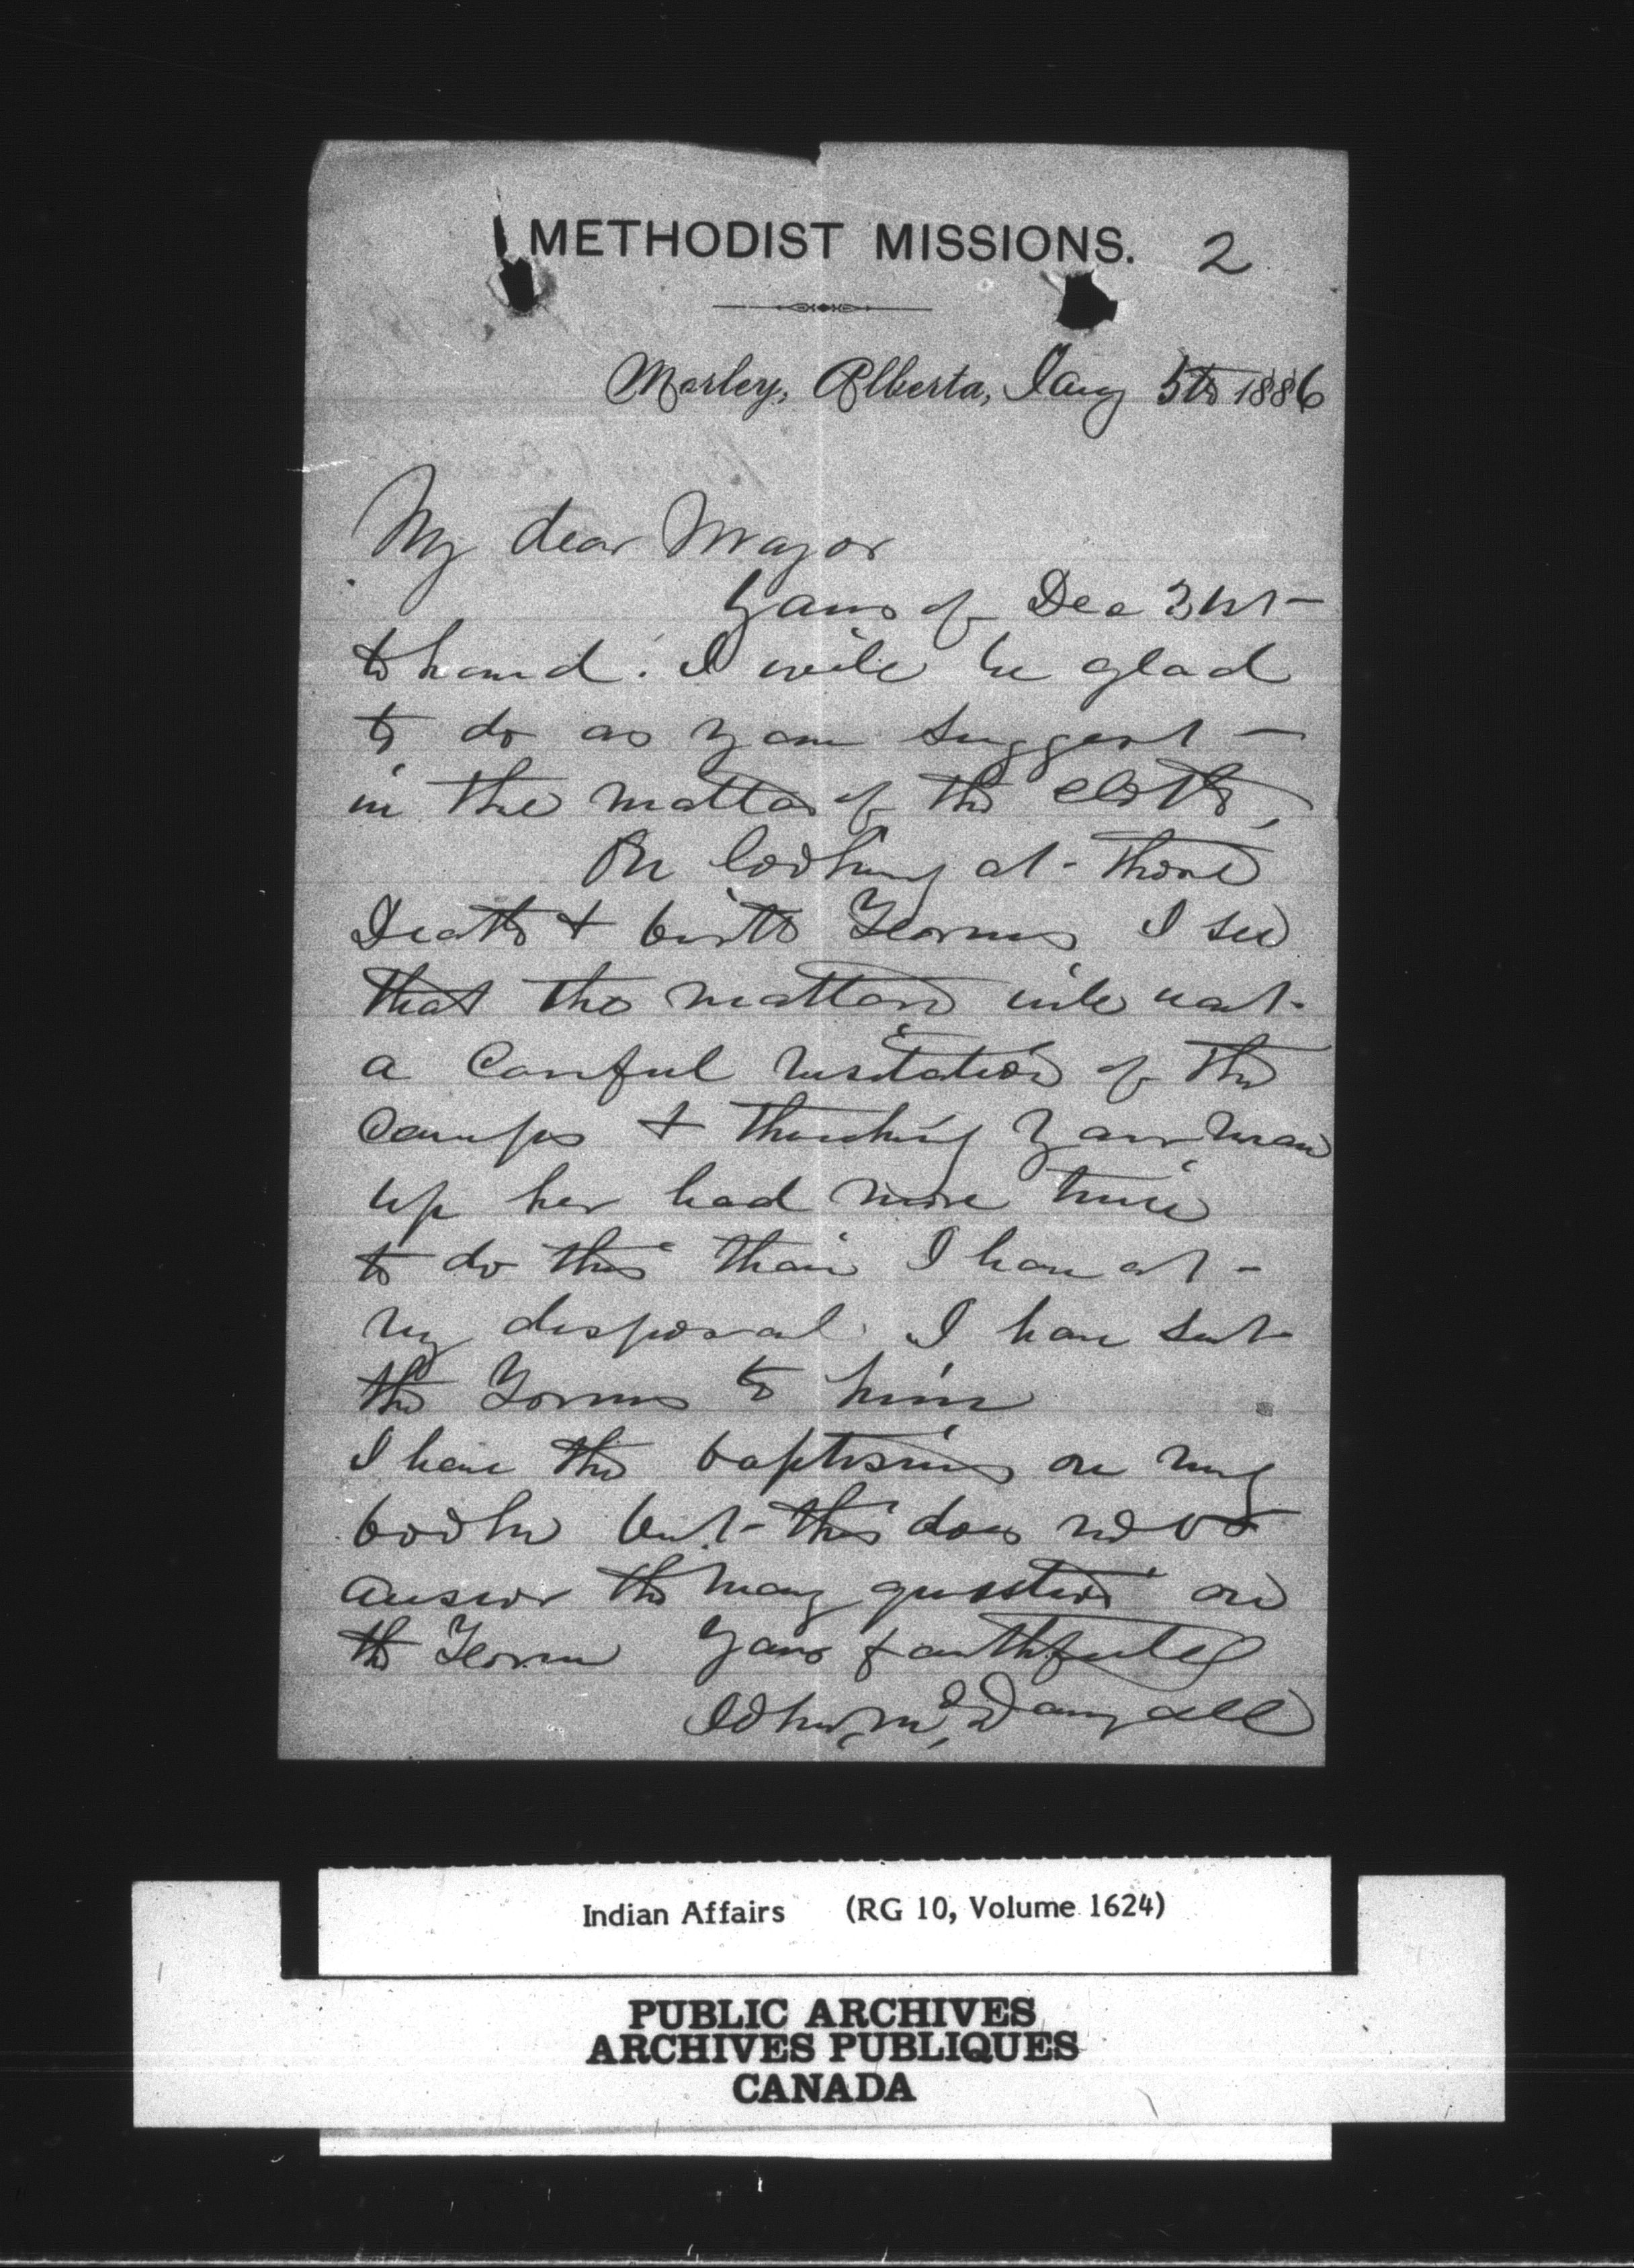 METHODIST MISSIONS. 2
Morley, Alberta, Jany 5th 1886
My dear Major
Yours of Dec 31st
to hand. I will be glad
to do as you suggest
in the matter of the cloth,
On looking at those
Death & birth Forms I see
that the matter will want
a careful visitation of the
camps & thinking your man
up her had more time
to do this than I have at
my disposal I have sent
the Forms to him
I have the baptisms on my
books but this does not
answer the many question on
the Form Yours faithfully
John McDougall
Indian Affairs (RG 10, Volume 1624)
PUBLIC ARCHIVES
ARCHIVES PUBLIQUES
CANADA